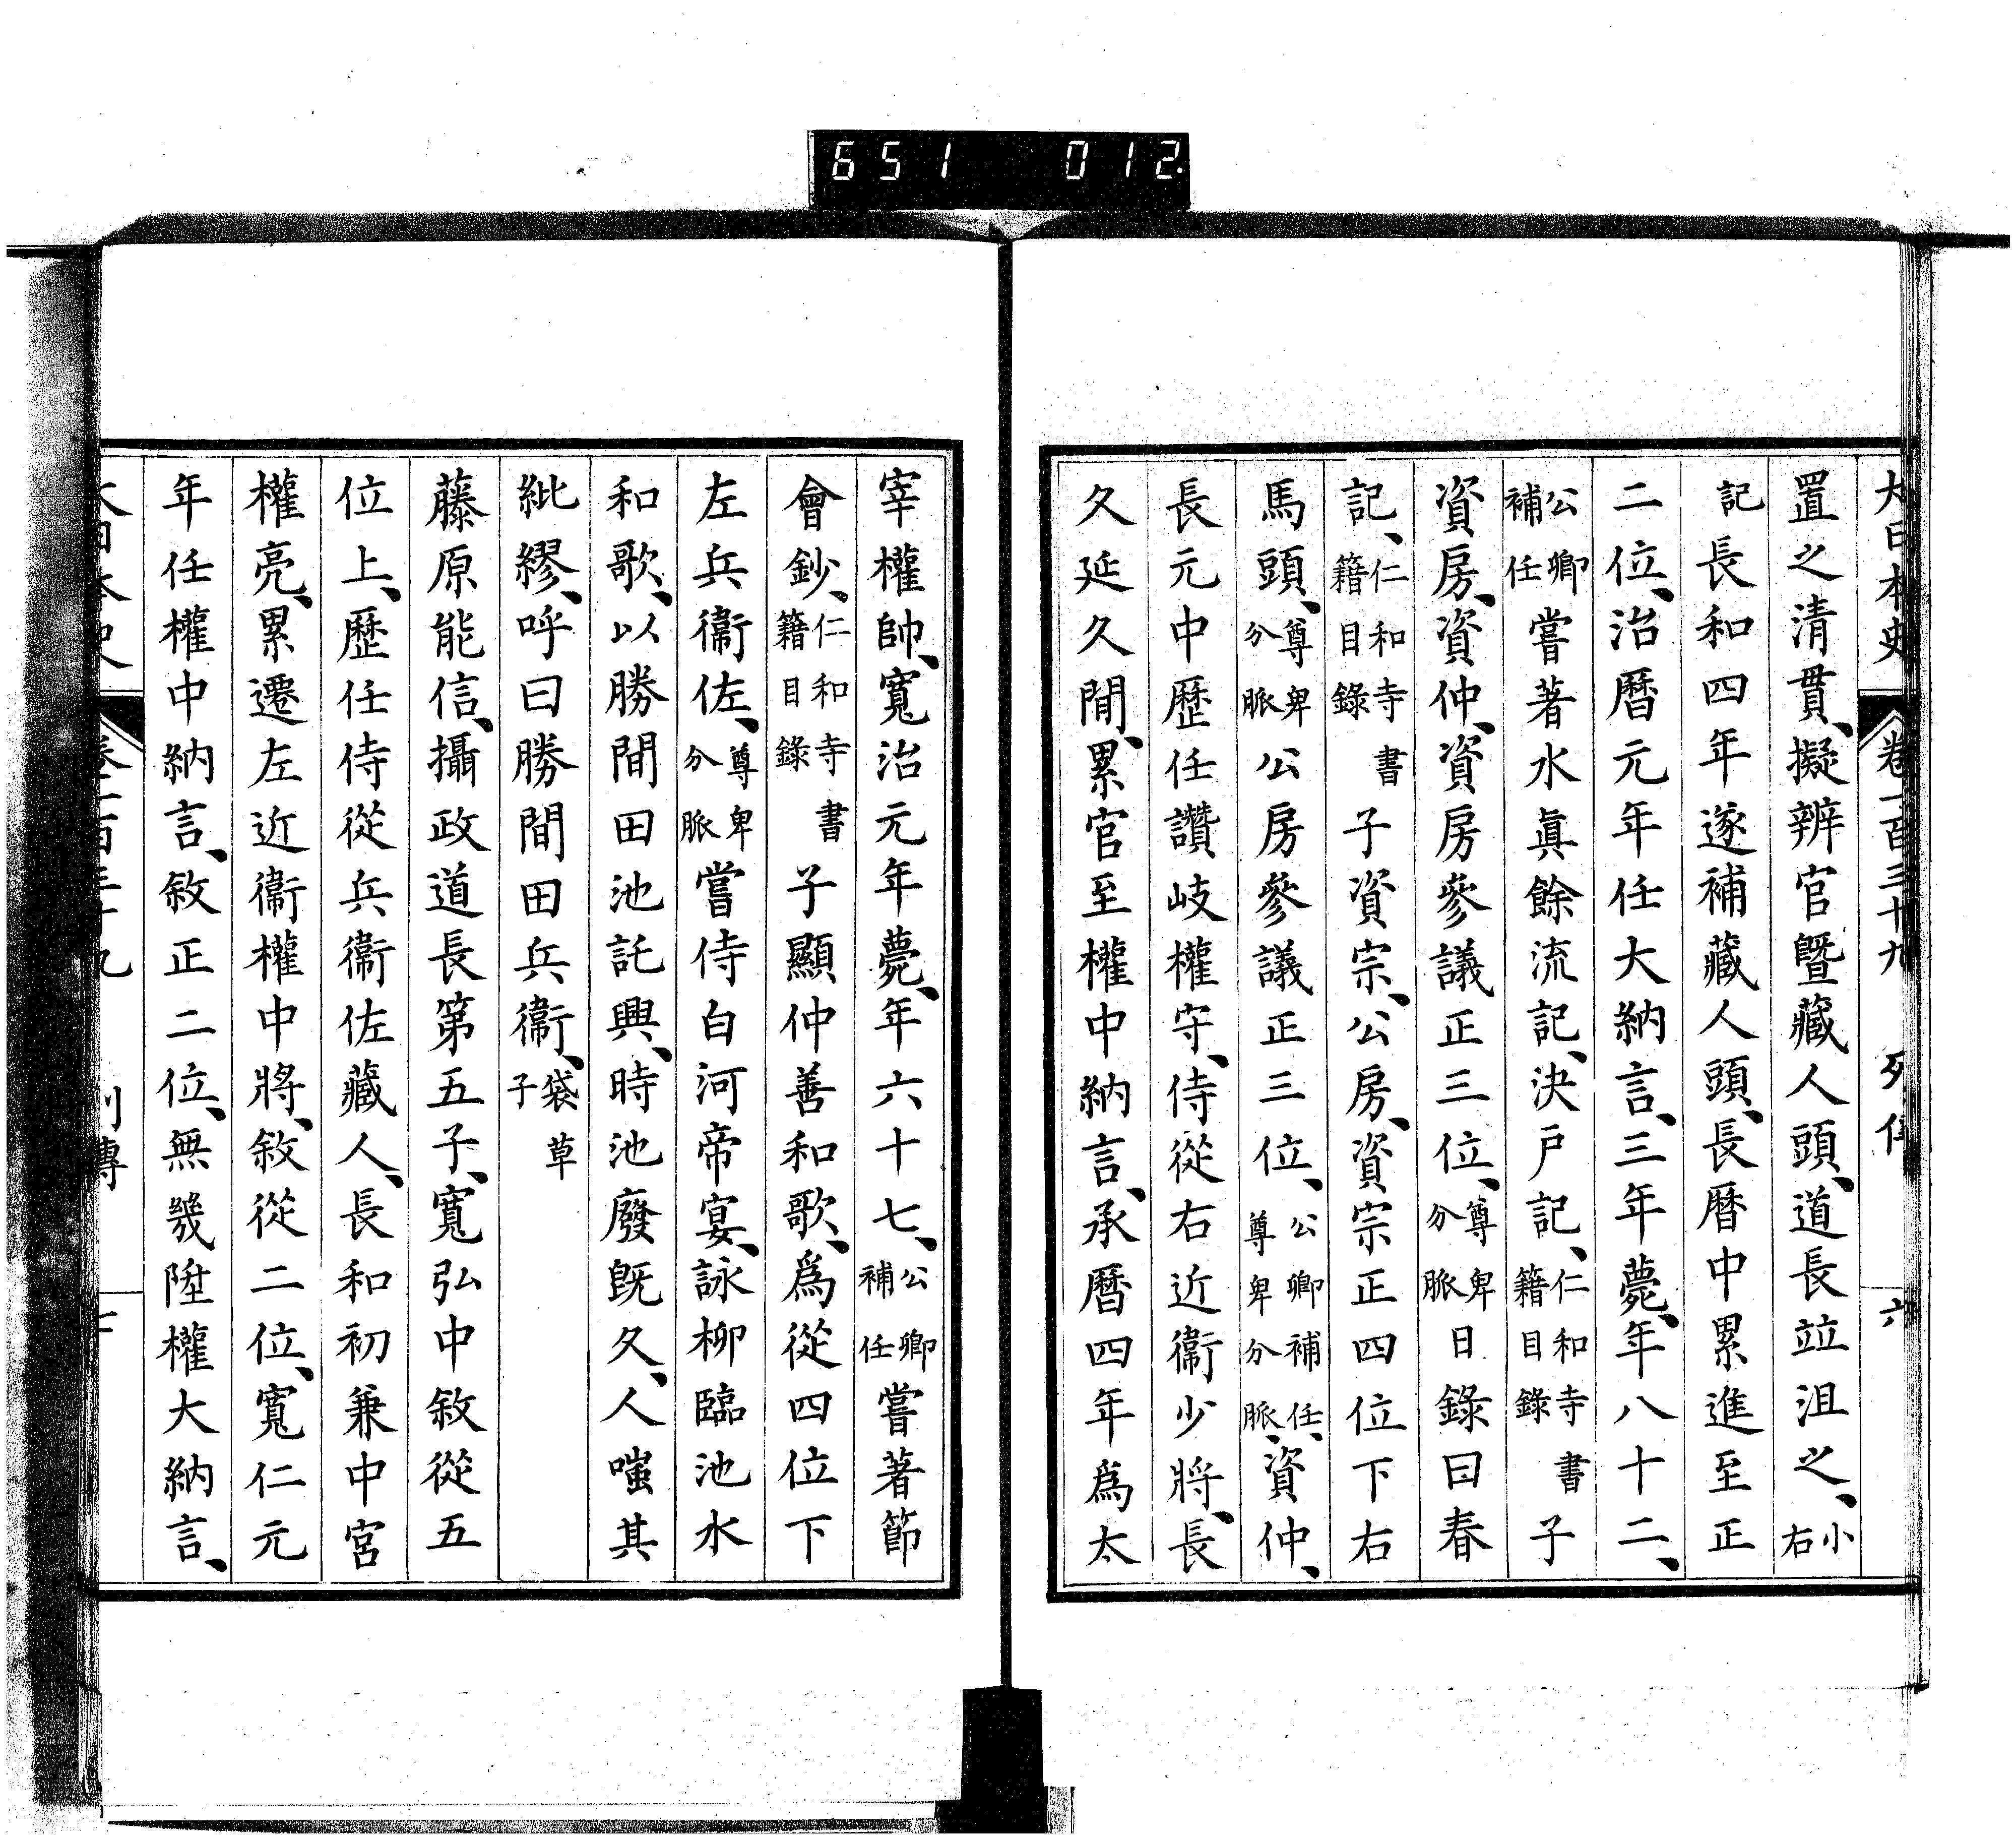 651 012.
大日本史 卷一百三十九 列傳 六
置之清貫、擬辨官曁藏人頭、道長竝沮之、小右
記長和四年遂補藏人頭、長曆中累進至正
二位、治曆元年任大納言、三年薨、年八十二、
公卿補任嘗著水眞餘流記、決戸記、仁和寺書籍目錄子
資房、資仲、資房參議正三位、尊卑分脈日錄曰春
記、仁和寺書籍目錄子資宗、公房、資宗正四位下右
馬頭、尊卑分脈公房參議正三位、公卿補任、尊卑分脈、資仲、
長元中歷任讚岐權守、侍從右近衞少將、長
久延久閒、累官至權中納言、承曆四年爲太
宰權帥、寬治元年薨、年六十七、公卿補任嘗著節
會鈔、仁和寺書籍目錄子顯仲善和歌、爲從四位下
左兵衞佐、尊卑分脈嘗侍白河帝宴、詠柳臨池水
和歌、以勝間田池託興、時池廢既久、人嗤其
紕繆、呼曰勝間田兵衞、袋草子
藤原能信、攝政道長第五子、寬弘中敘從五
位上、歷任侍從兵衞佐藏人、長和初兼中宮
權亮、累遷左近衞權中將、敘從二位、寬仁元
年任權中納言、敘正二位、無幾陞權大納言、
大日本史 卷一百三十九 列傳 七